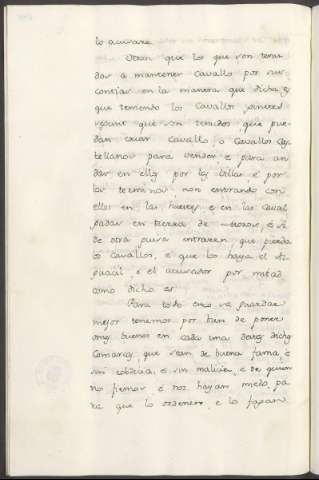 lo acusare
Otrosi que los que son tenu
dos a mantener cavallo por sus
contias en la manera que dicha es
que teniendo los cavallos
que son tenudos, que pue
dan criar cavallo, o cavallos Cas
tellanos para vender e para an
dar en ellos por las villas e por
los terminos non entrando con
ellos en las huertes e en las caval
gadas en tierra de moros, e si
de otra guisa entraren, que pierda
los cavallos, e que los haya el Al
guacil, e el acusador por mitad
como dicho es
Para todo esto se guardar
mejor tenemos por bien de poner
omes buenos en cada una destas dichas
Comarcas, que sean de buena fama, e
sin cobdicia, e sin malicia, e de quien
nos fiemos e nos hayan miedo, pa
ra que lo ordenen, e lo fagan